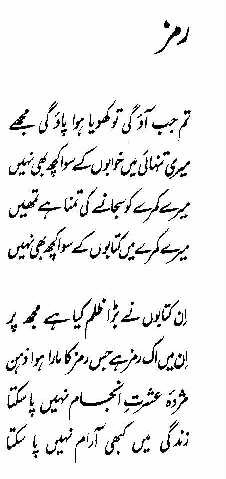 رمز
تم جب آؤ گی تو کھویا ہوا پاؤ گی مجھے
میری تنہائی میں خوابوں کے سوا کچھ بھی نہیں
میرے کمرے کو سجانے کی تمنا ہے تمھیں
میرے کمرے میں کتابوں کے سوا کچھ بھی نہیں
اِن کتابوں نے بڑا ظلم کیا ہے مجھ پر
اِن میں اک رمز ہے جس رمز کا مارا ہوا ذہن
مژدۂ عشرتِ انجام نہیں پا سکتا
زندگی میں کبھی آرام نہیں پا سکتا